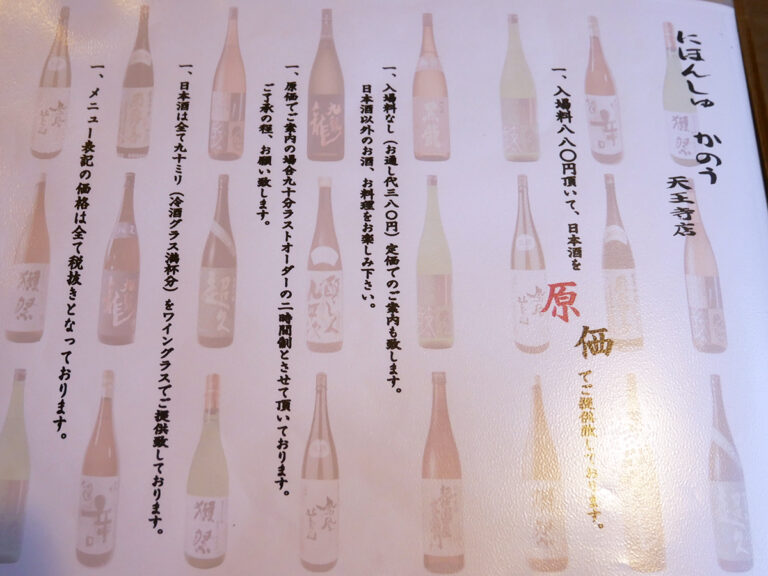 にほんしゅ かのう
天王寺店
一、入場料八八〇円頂いて、日本酒を
原価でご提供致しております。
一、入場料なし(お通し代三八〇円)定価でのご案内も致します。
日本酒以外のお酒、お料理をお楽しみ下さい。
一、原価でご案内の場合九十分ラストオーダーの二時間制とさせて頂いております。
ご了承の程、お願い致します。
一、日本酒は全て九十ミリ(冷酒グラス満杯分)をワイングラスでご提供致しております。
一、メニュー表記の価格は全て税抜きとなっております。
獺祭
獺祭
獺祭